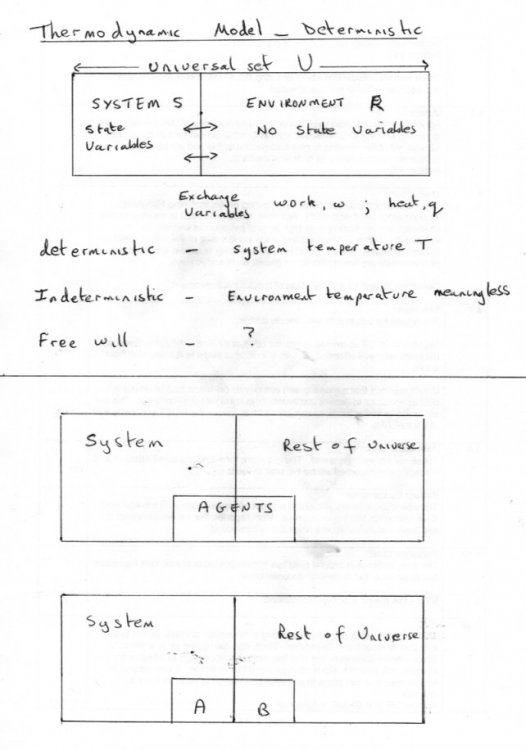 Thermodynamic Model - Deterministic
Universal set U
SYSTEM S
ENVIRONMENT R
State Variables
No State Variables
Exchange Variables work, w ; heat, q
deterministic - system temperature T
Indeterministic - Environment temperature meaningless
Free will - ?
System
Rest of Universe
AGENTS
System
Rest of Universe
A
B